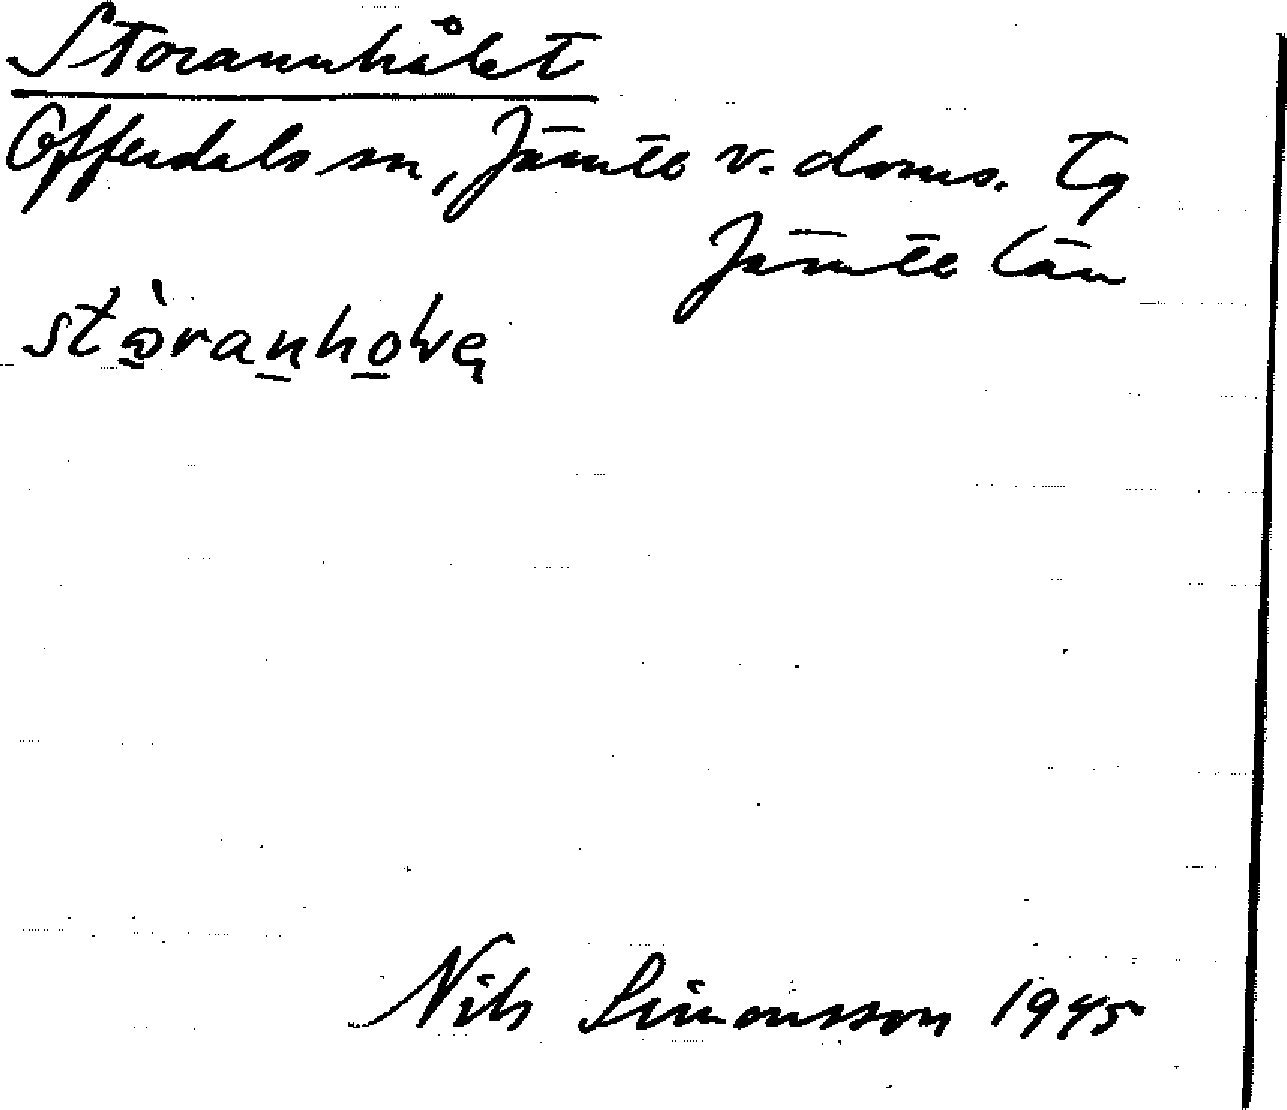 Storannhålet
Offerdals sn, Jämtl v. doms. Tg
Jämtl län
Nils Simonsson 1945